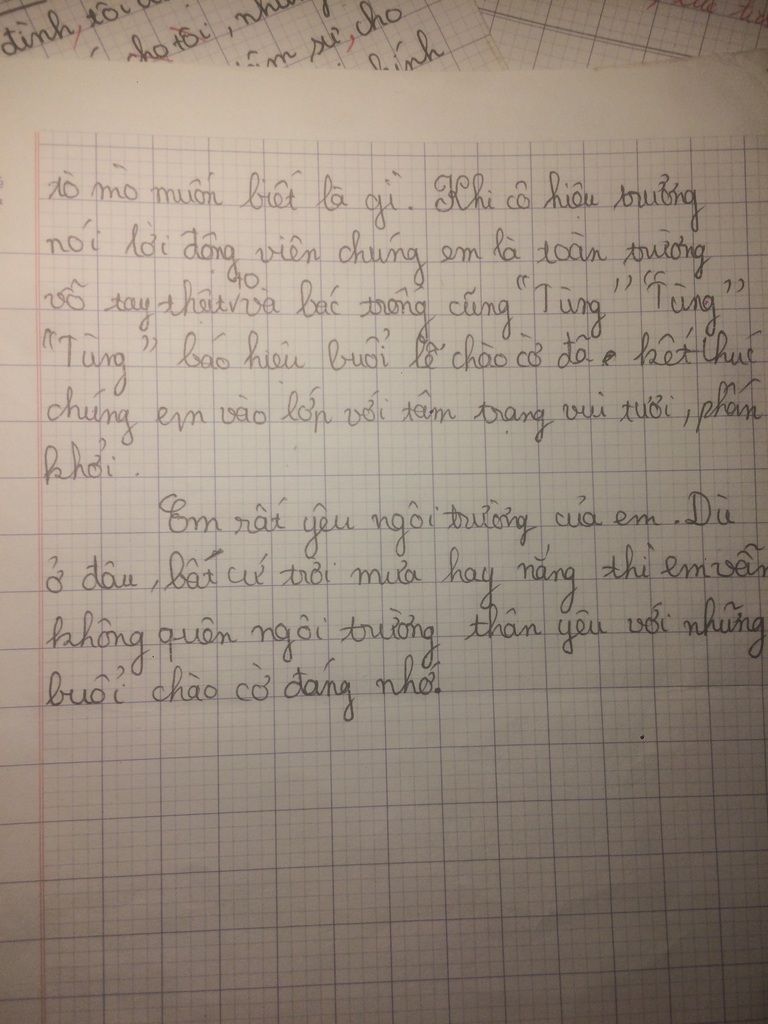 đình, tôi
cho tôi, nhữ
tâm sự, cho
kính
tò mò muốn biết là gì. Khi cô hiệu trưởng
nói lời động viên chúng em là toàn trường
vỗ tay thật to và bác trống cũng "Tùng" "Tùng"
"Tùng" báo hiệu buổi lễ chào cờ đã kết thúc
chúng em vào lớp với tâm trạng vui tươi, phấn
khởi.
Em rất yêu ngôi trường của em. Dù
ở đâu, bất cứ trời mưa hay nắng thì em vẫn
không quên ngôi trường thân yêu với những
buổi chào cờ đáng nhớ.